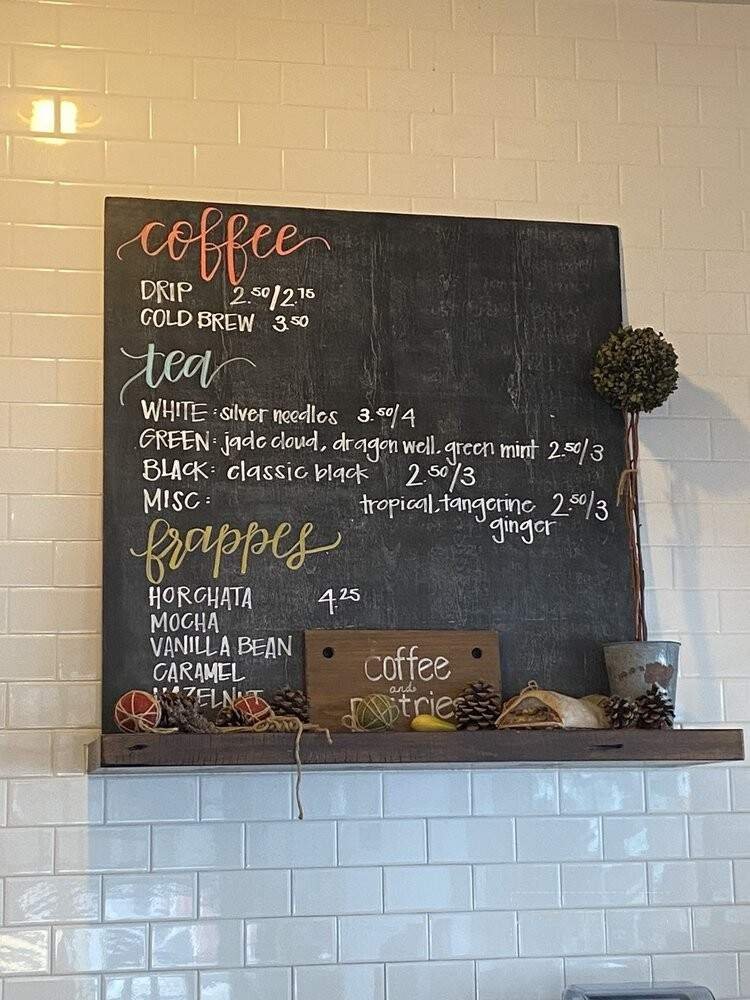 coffee
DRIP 2.50/2.75
COLD BREW 3.50
tea
WHITE: silver needles 3.50/4
GREEN: jade cloud, dragon well, green mint 2.50/3
BLACK: classic black 2.50/3
MISC: tropical, tangerine 2.50/3
ginger
frappes
HORCHATA 4.25
MOCHA
VANILLA BEAN
CARAMEL
HAZELNUT
coffee
and